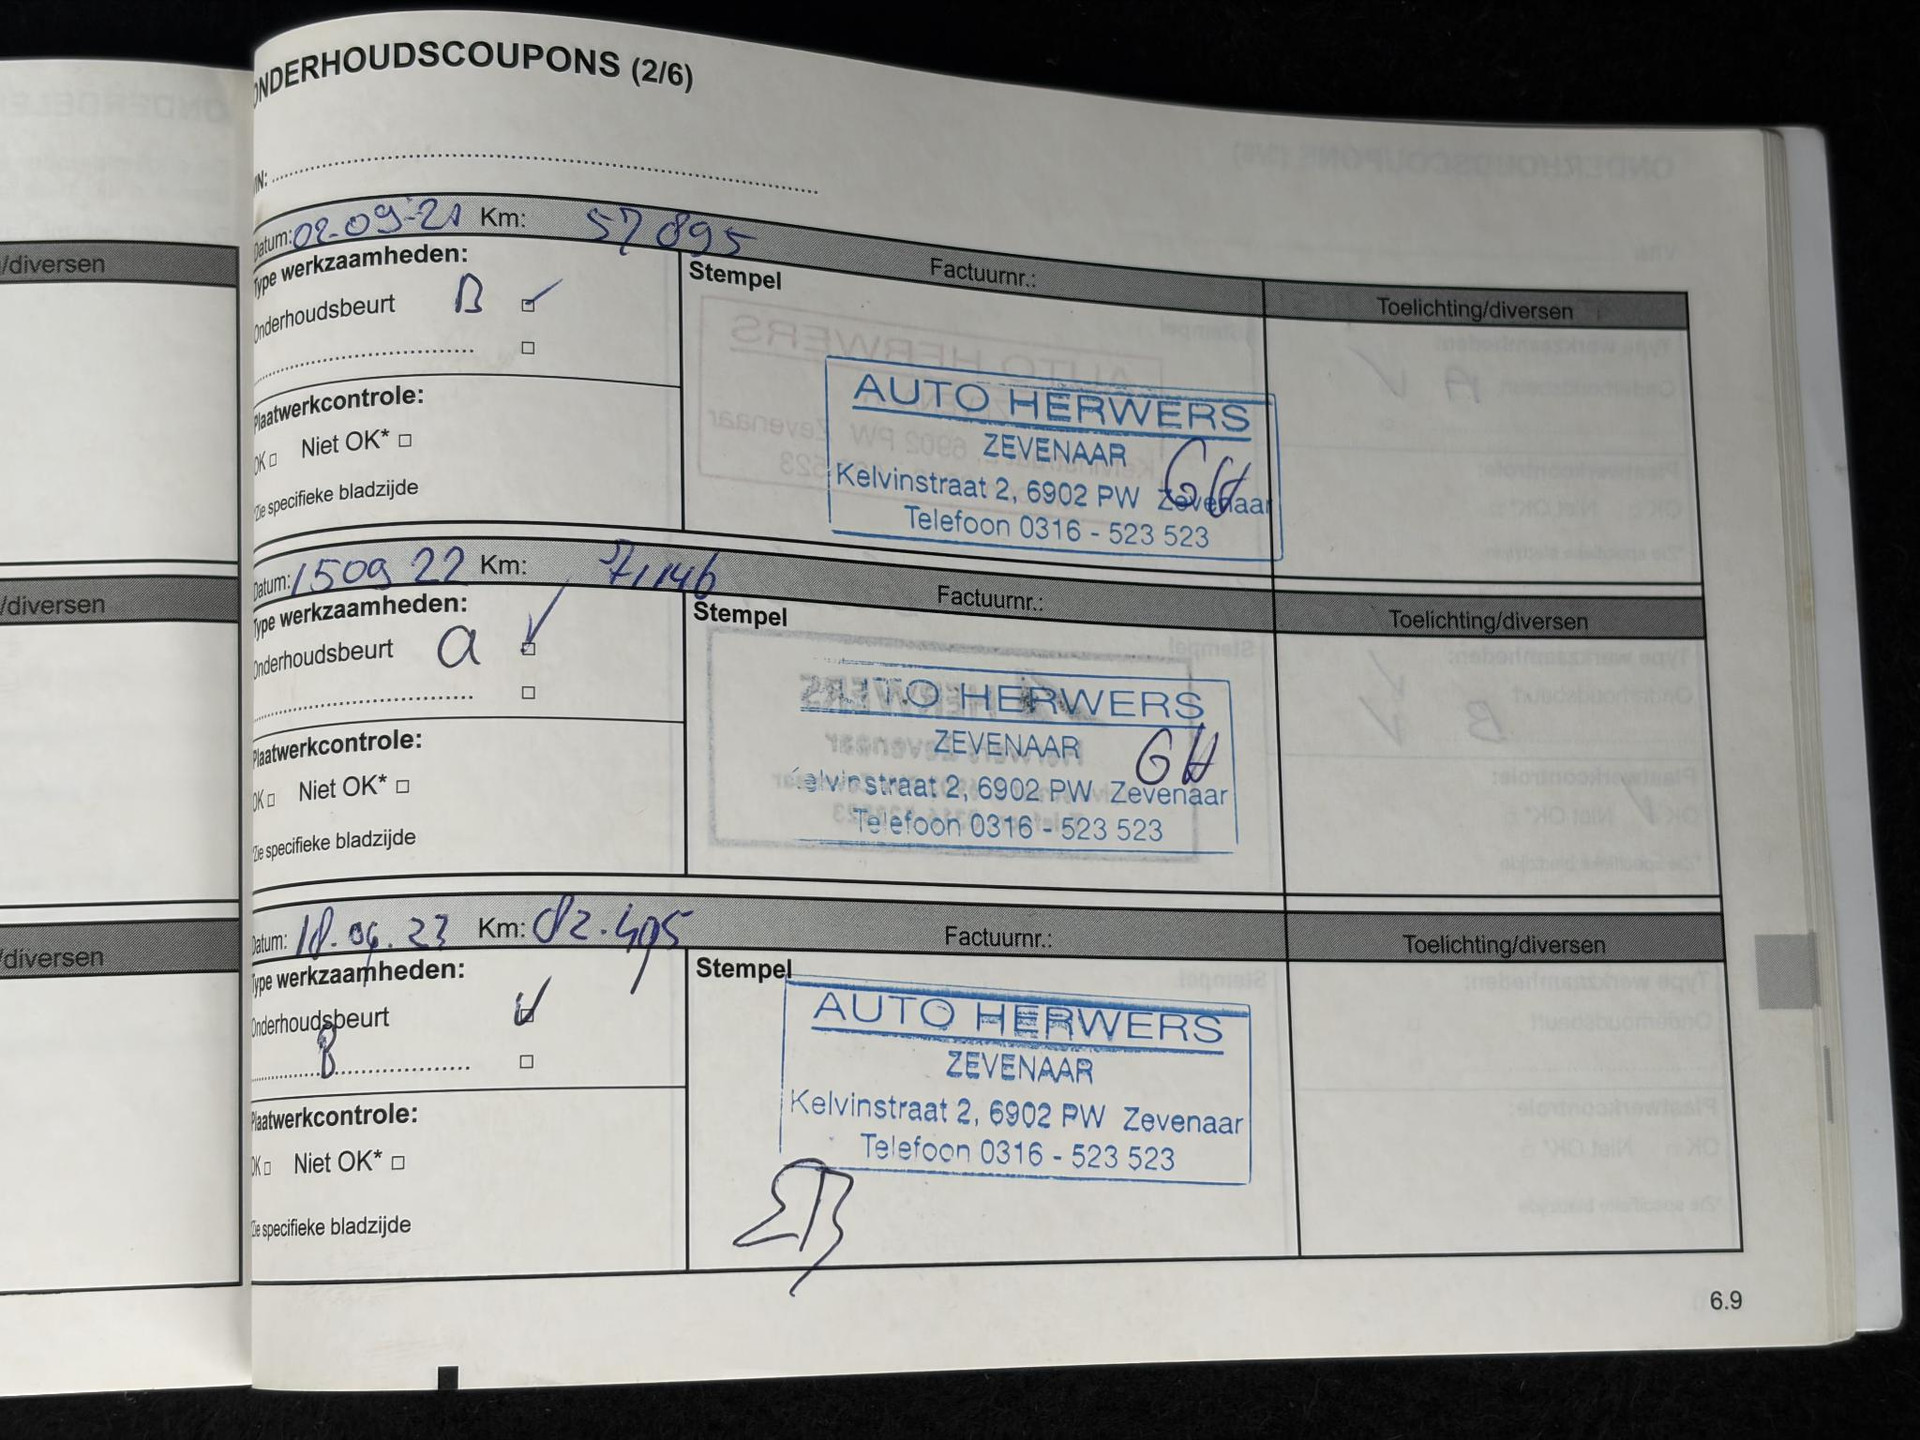 ONDERHOUDSCOUPONS (2/6)
VIN:
Datum: 02-09-21 Km: 57895 Factuurnr.:
Type werkzaamheden:
Stempel
Toelichting/diversen
Onderhoudsbeurt B
Plaatwerkcontrole:
OK Niet OK*
*Zie specifieke bladzijde
AUTO HERWERS
ZEVENAAR
Kelvinstraat 2, 6902 PW Zevenaar
Telefoon 0316 - 523 523
GH
Datum: 150922 Km: 71146 Factuurnr.:
Type werkzaamheden:
Stempel
Toelichting/diversen
Onderhoudsbeurt a
Plaatwerkcontrole:
OK Niet OK*
*Zie specifieke bladzijde
AUTO HERWERS
ZEVENAAR
Kelvinstraat 2, 6902 PW Zevenaar
Telefoon 0316 - 523 523
GH
Datum: 18.09.23 Km: 82.495 Factuurnr.:
Type werkzaamheden:
Stempel
Toelichting/diversen
Onderhoudsbeurt
B
Plaatwerkcontrole:
OK Niet OK*
*Zie specifieke bladzijde
AUTO HERWERS
ZEVENAAR
Kelvinstraat 2, 6902 PW Zevenaar
Telefoon 0316 - 523 523
6.9
/diversen
/diversen
/diversen